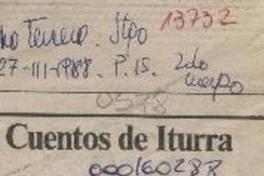 13732
Tercera. Stgo
27-III-1988. P. 15. 2do
cuerpo
0578
Cuentos de Iturra
000160288